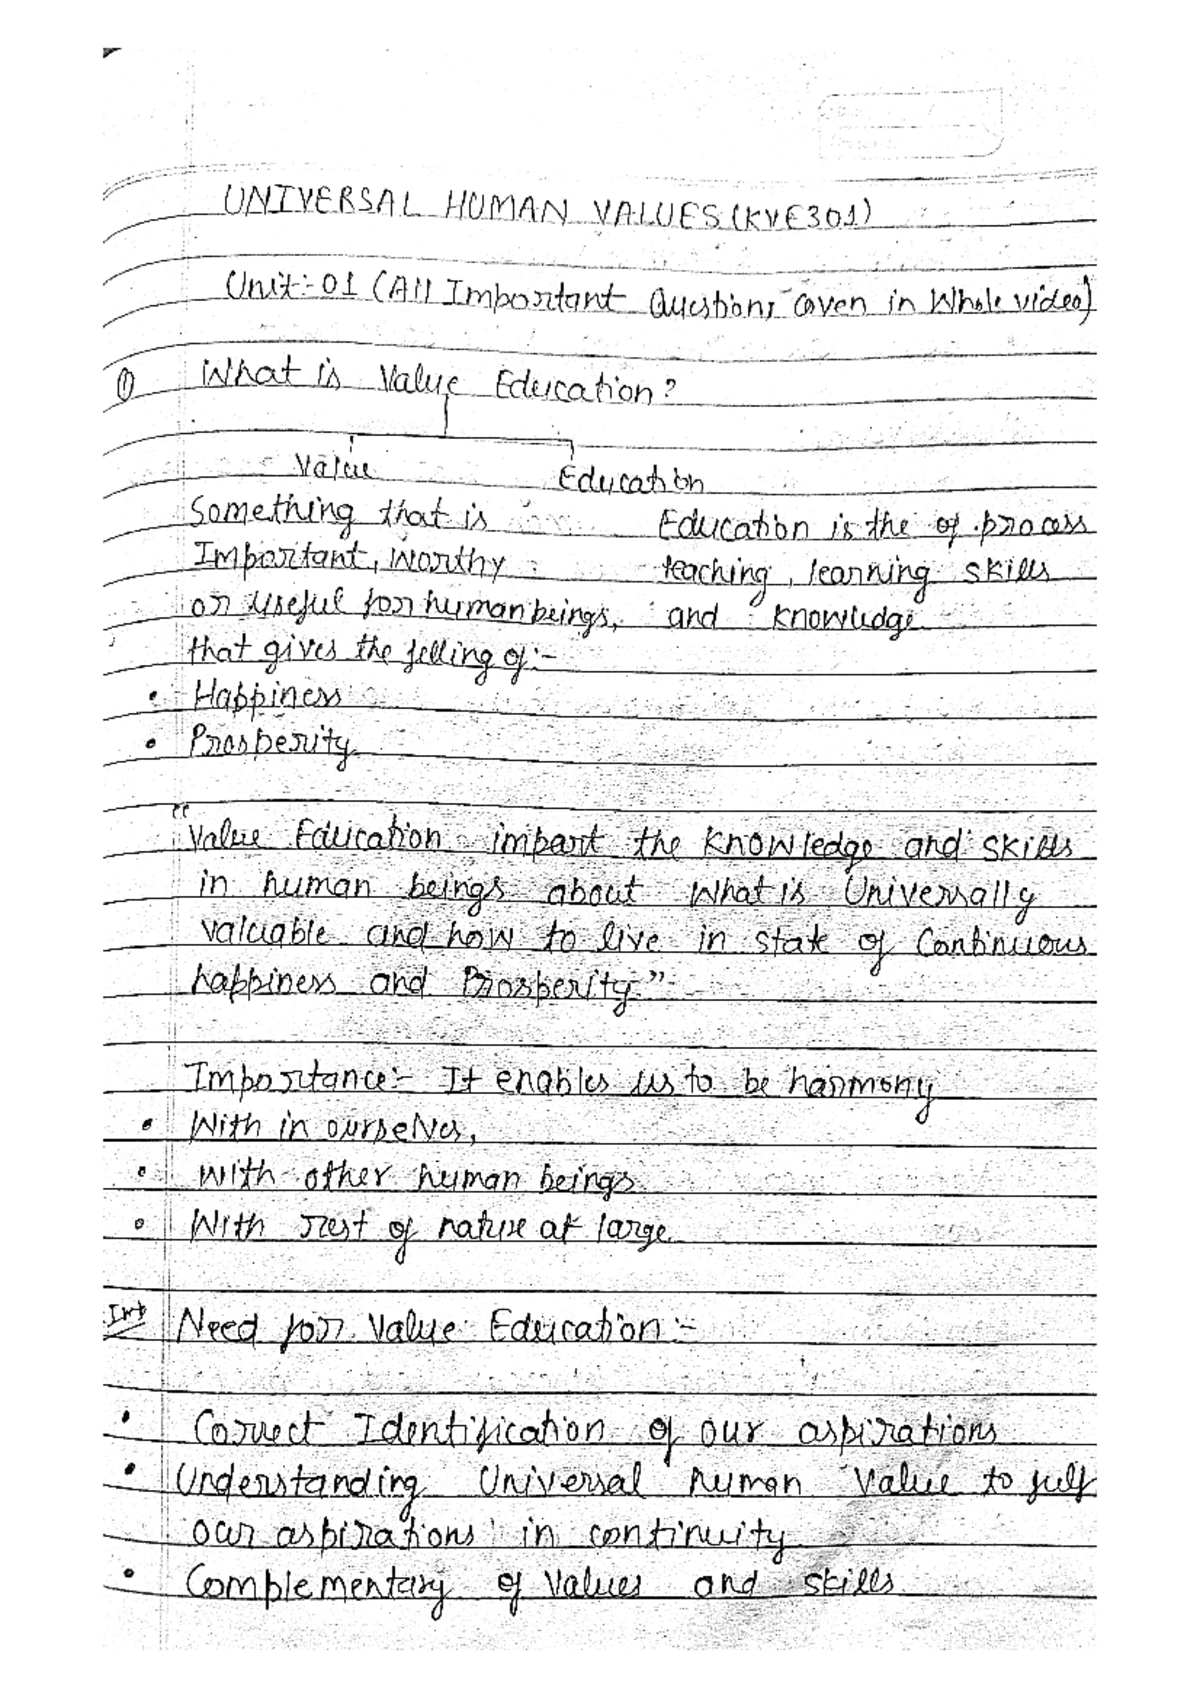 UNIVERSAL HUMAN VALUES (KVE301)
Unit:-01 (All Important Questions coven in Whole video)
① What is Value Education?
Value Education
Something that is Education is the of process
Important, worthy teaching, learning skills
or useful for human beings, and knowledge
that gives the felling of:-
• Happiness
• Prosperity
"Value Education impart the knowledge and skills
in human beings about What is Universally
valuable and how to live in state of Continuous
happiness and Prosperity"
Importance:- It enables us to be harmony
• With in ourselves,
• With other human beings
• With rest of nature at large
Imt Need for Value Education:-
• Correct Identification of our aspirations
• Understanding Universal human Value to fulf
our aspirations in continuity
• Complementary of Values and skills